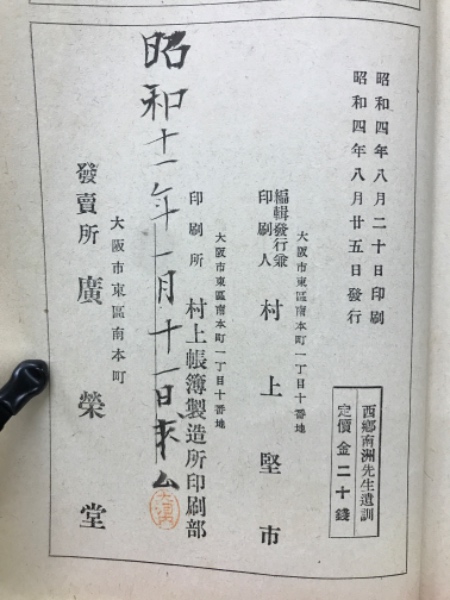 昭和四年八月二十日印刷
昭和四年八月廿五日發行
西鄕南洲先生遺訓
定價金二十錢
大阪市東區南本町一丁目十番地
編輯發行兼
印刷人 村上堅市
大阪市東區南本町一丁目十番地
印刷所 村上帳簿製造所印刷部
昭和十一年一月十一日求ム
大阪市東區南本町
發賣所 廣榮堂